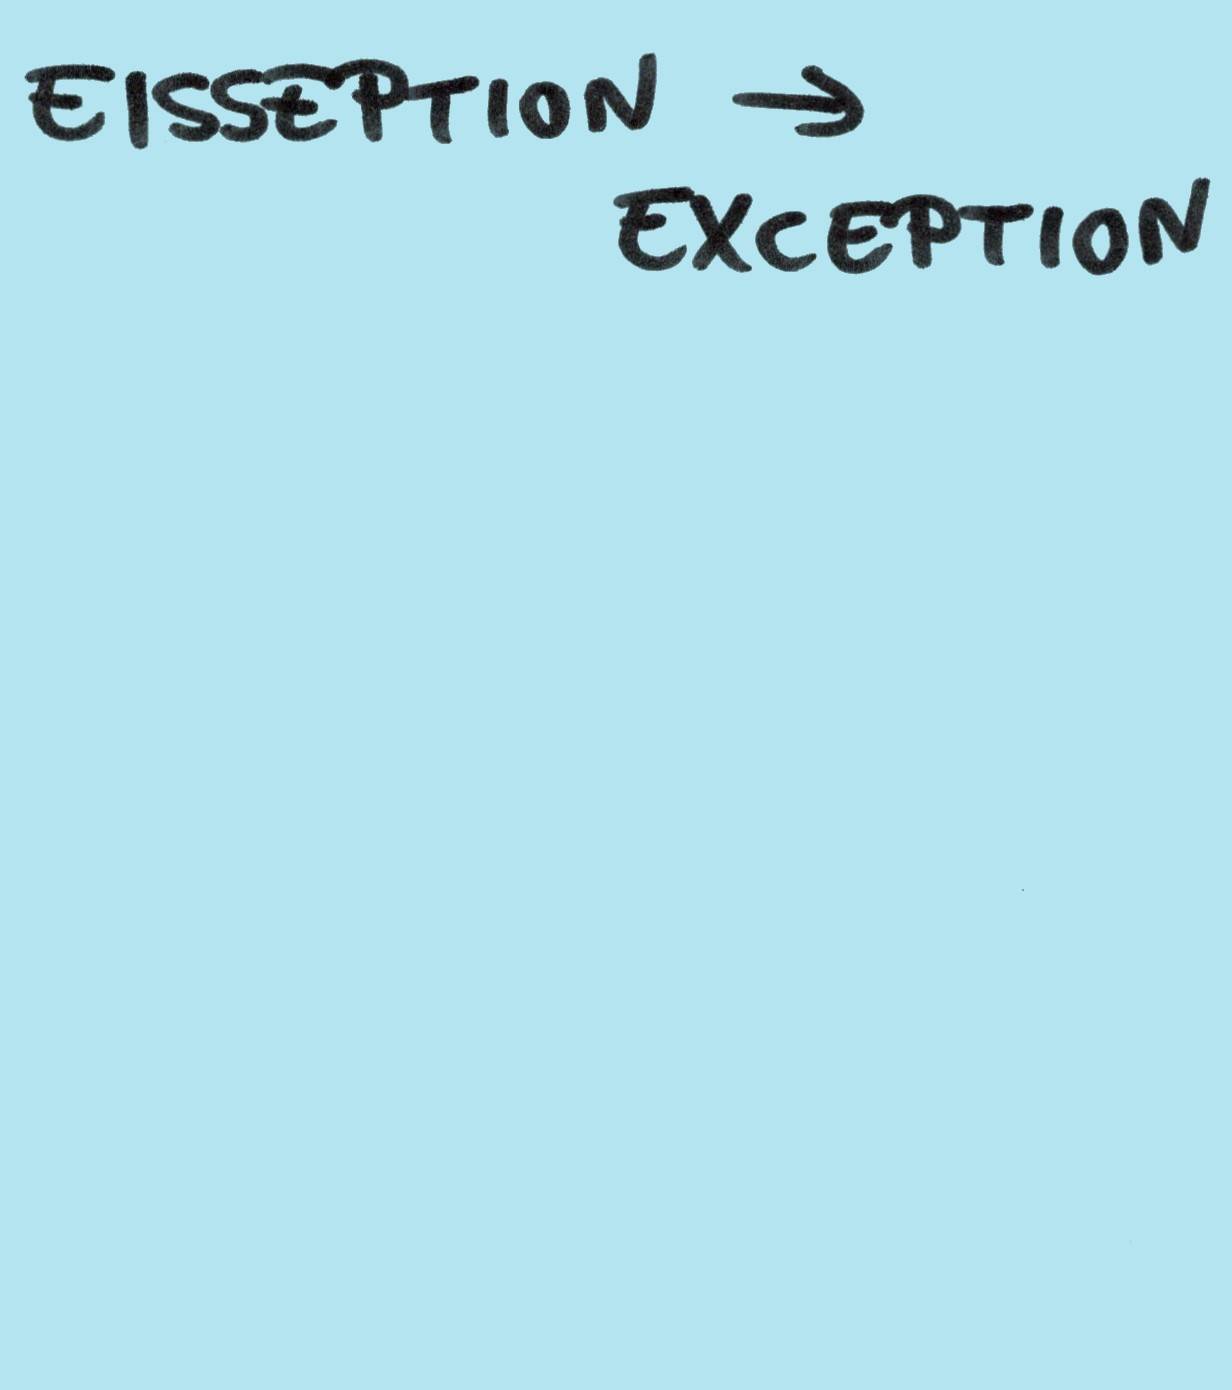 EISSEPTION →
EXCEPTION